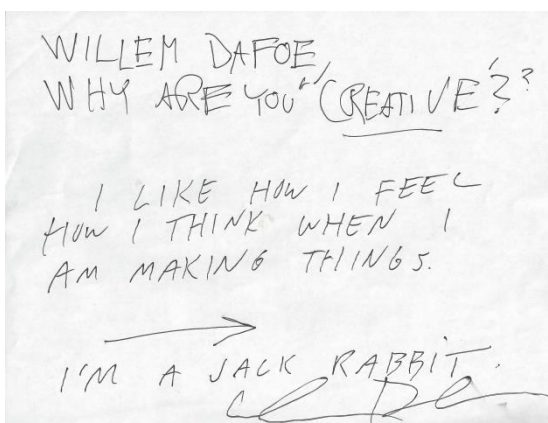 WILLEM DAFOE,
WHY ARE YOU "CREATIVE"??
I LIKE HOW I FEEL
HOW I THINK WHEN I
AM MAKING THINGS.
I'M A JACK RABBIT.